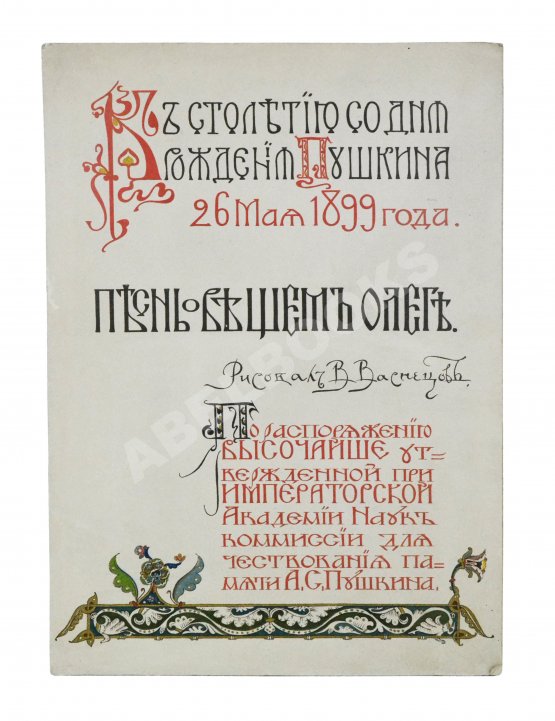 Къ столѣтію со дня
рожденія Пушкина
26 Мая 1899 года.
Пѣснь о вѣщемъ Олегѣ.
Рисовалъ В. Васнецовъ.
По распоряженію
ВЫСОЧАЙШЕ ут-
вержденной при
ИМПЕРАТОРСКОЙ
Академіи Наукъ
коммиссіи для
чествованія па-
мяти А.С. Пушкина.
ABEBOOKS